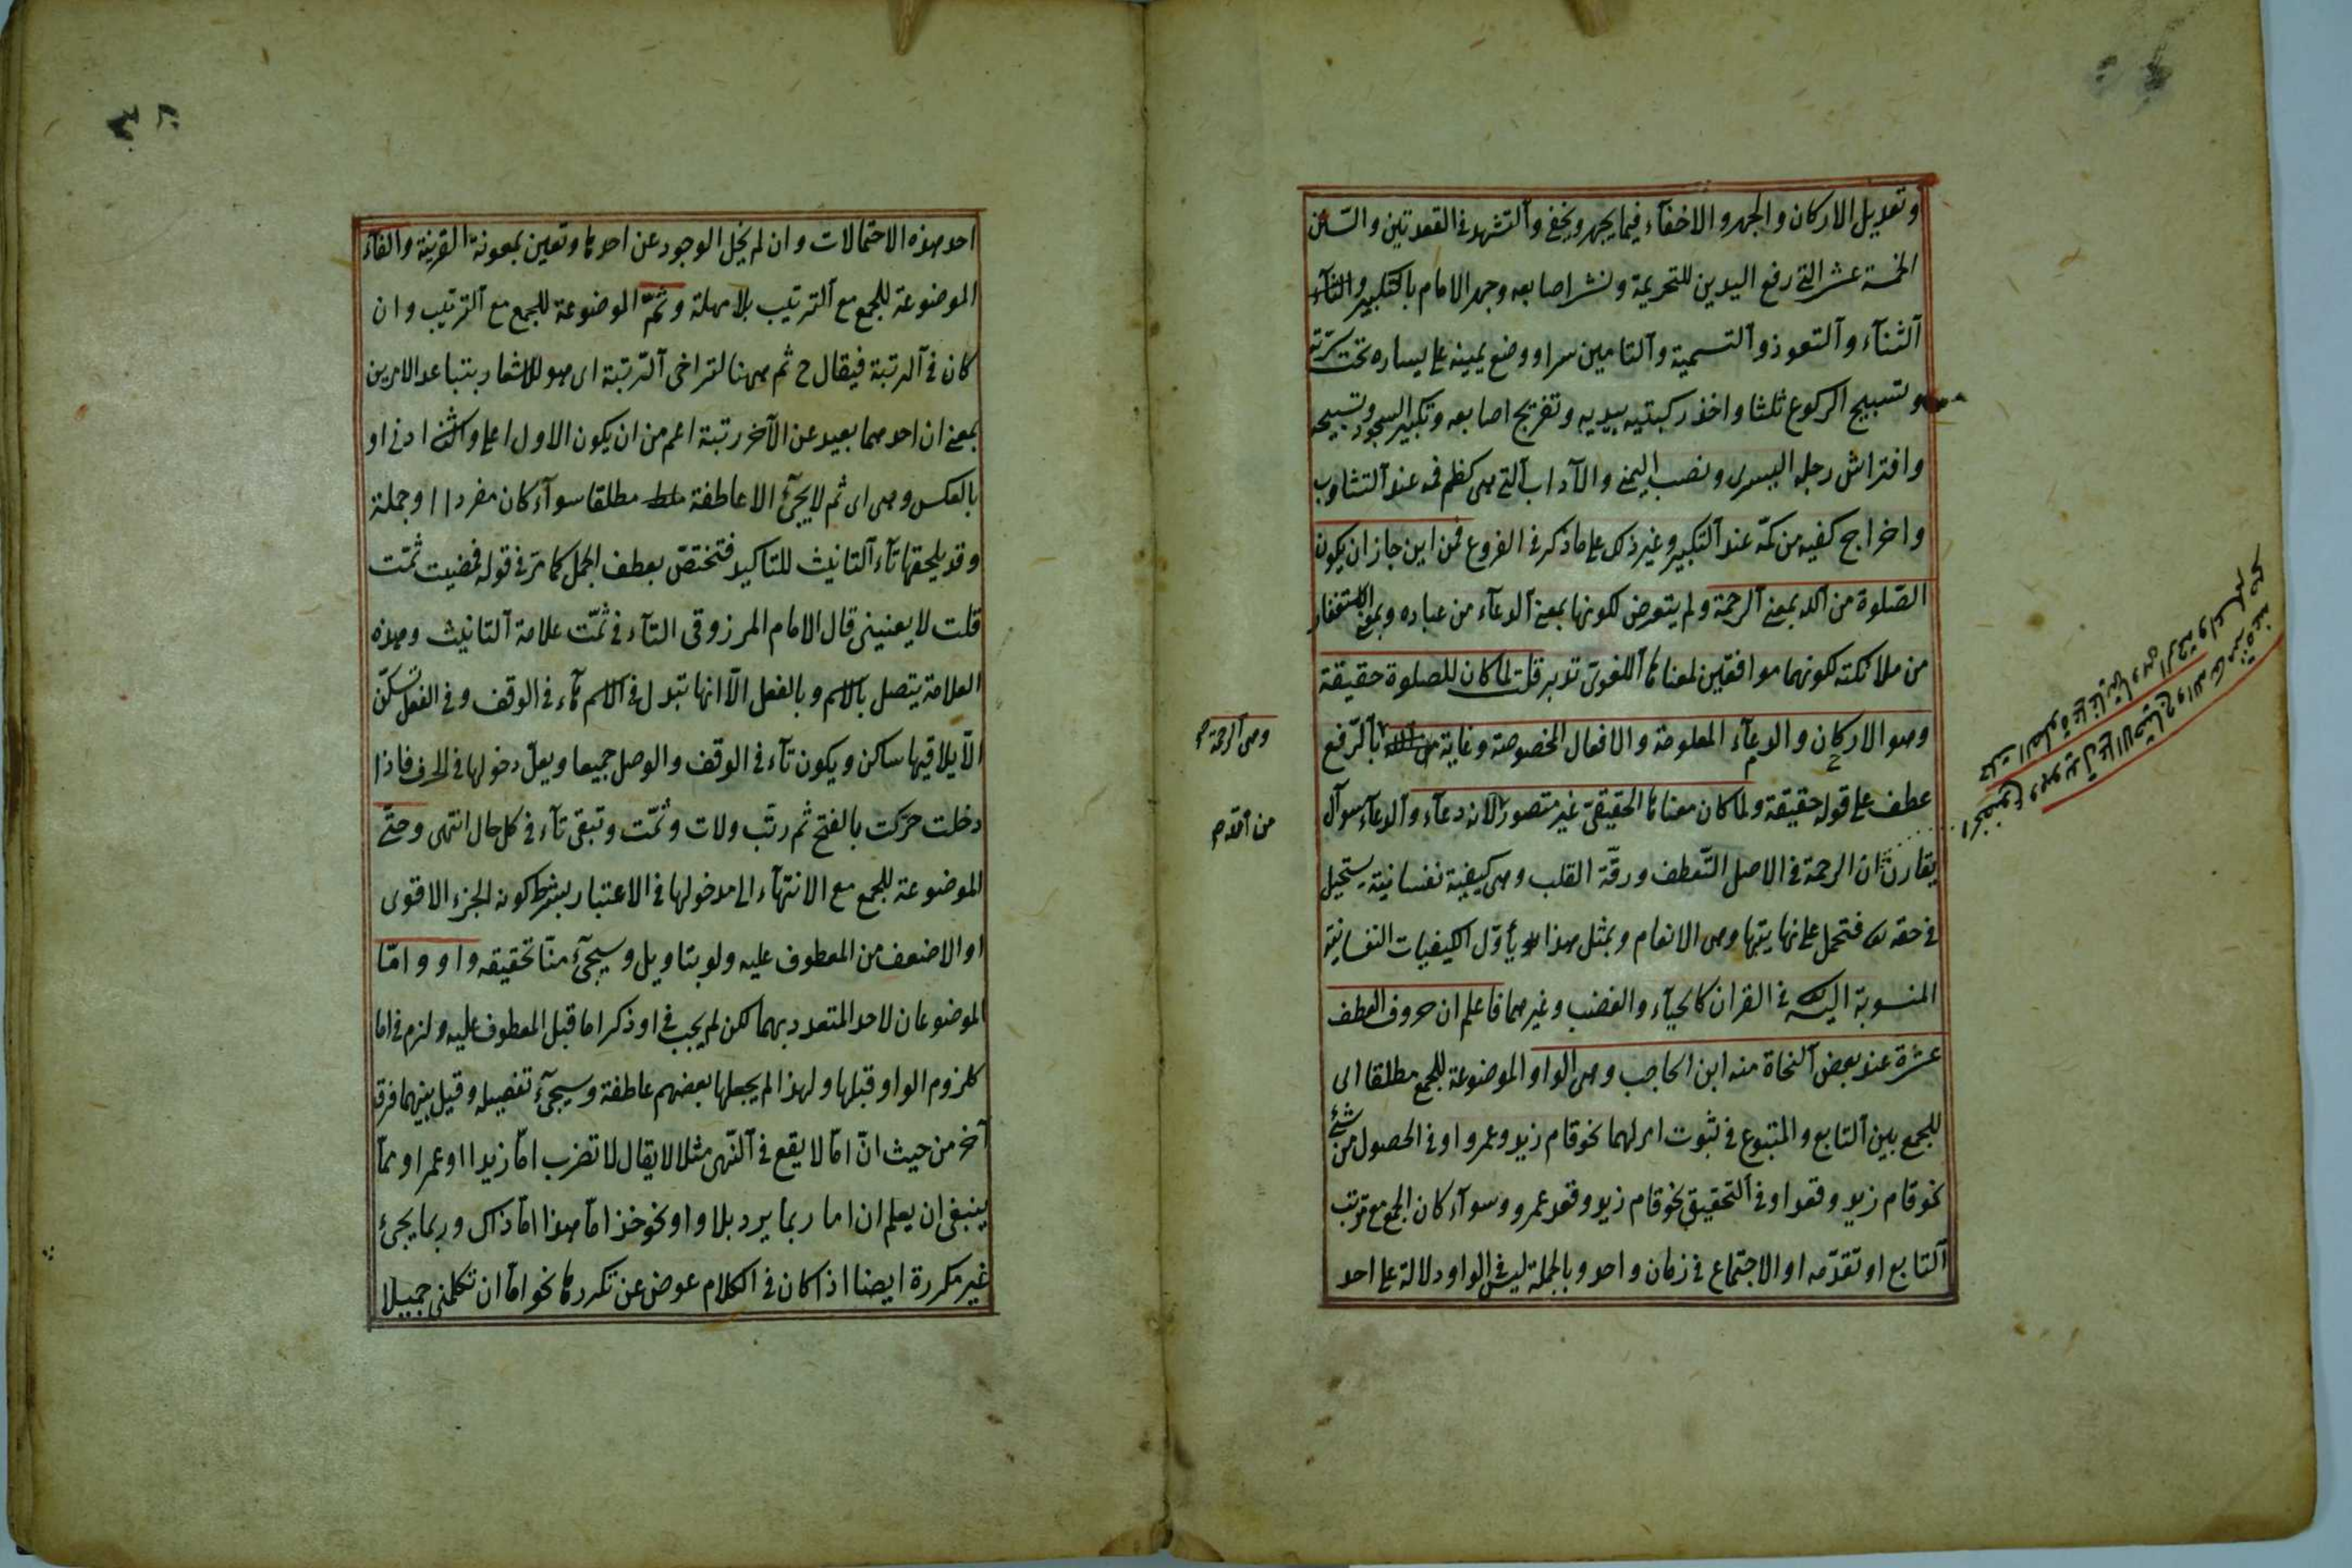 وتعديل الاركان والجهر والاخفآء فيما يجهر ويخفى والتشهد فى القعدتين والسنن
الخمسة عشر التى رفع اليدين للتحريمة ونشر اصابعه وجهر الامام بالتكبير
الثنآء والتعوذ والتسمية والتامين سرا ووضع يمينه على يساره تحت سرّته
وتسبيح الركوع ثلثا واخذ ركبتيه بيديه وتفريج اصابعه وتكبير السجود وتسبيحه
وافتراش رجله اليسرى ونصب اليمنى والآداب التى هى كظم فمه عند التثاوب
واخراج كفيه من كمّه عند التكبير وغير ذلك على ما ذكر فى الفروع فمن اين جاز ان يكون
الصّلوة من الله بمعنى الرحمة ولم يتعرض لكونها بمعنى الدعآء من عباده وبمعنى الاستغفار
من ملائكته لكونهما موافقين لمعناها اللغوى تدبر قلت لما كان للصلوة حقيقة
وهو الاركان والدعآء المعلومة والافعال المخصوصة وغاية بالرّفع
عطف على قوله حقيقة ولما كان معناها الحقيقىّ غير متصور لانه دعآء والدعآء سوآل
يقارن ان الرحمة فى الاصل التّعطف ورقّة القلب وهى كيفية نفسانية يستحيل
فى حقه تعالى فتحمل على نهايتها وهى الانعام وبمثل هذا يأوّل الكيفيات النفسانية
المنسوبة اليه تعالى فى القران كالحيآء والغضب وغيرهما فاعلم ان حروف العطف
عشرة عند بعض النحاة منه ابن الحاجب وهى الواو الموضوعة للجمع مطلقا اى
للجمع بين التابع والمتبوع فى ثبوت امر لهما نحو قام زيد وعمرو او فى الحصول من شئ
نحو قام زيد وقعد او فى التحقيق نحو قام زيد وقعد عمرو وسوآء كان الجمع مع ترتب
التابع او تقدّمه او الاجتماع فى زمان واحد وبالجملة ليس فى الواو دلالة على احد
وهى الرحمة صح
احد هذه الاحتمالات وان لم يخل الوجود عن احدها وتعين بمعونة القرينة والفآء
الموضوعة للجمع مع الترتيب بلا مهلة وثمّ الموضوعة للجمع مع الترتيب وان
كان فى الرتبة فيقال ح ثم ههنا لتراخى الرتبة اى هو للاشعار بتباعد الامرين
بمعنى ان احدهما بعيد عن الآخر رتبة اعم من ان يكون الاول اعلى والثانى ادنى او
بالعكس وهى اى ثم لا يجئ الا عاطفة مطلقا سوآء كان مفردا او جملة
وقد يلحقها تآء التانيث للتاكيد فتختصّ بعطف الجمل كما مرّ فى قوله فمضيت ثمّت
قلت لا يعنينى قال الامام المرزوقى التآء فى ثمّت علامة التانيث وهذه
العلامة يتصل بالاسم وبالفعل الاّ انها تبدل فى الاسم هآء فى الوقف وفى الفعل تسكّن
الاّ يلاقيها ساكن ويكون تآء فى الوقف والوصل جميعا ويعلّ دخولها فى الحرف فاذا
دخلت حرّكت بالفتح ثم ربّت ولات وثمّت وتبقى تآء فى كل حال انتهى وحتّى
الموضوعة للجمع مع الانتهآء الى مدخولها فى الاعتبار بشرط كونه الجزء الاقوى
او الاضعف من المعطوف عليه ولو بتاويل وسيجئ منّا تحقيقه واو وامّا
الموضوعان لاحد المتعدد بهما لكن لم يجب فى او ذكر اما قبل المعطوف عليه ولزم فى اما
كلزوم الواو قبلها ولهذا لم يجعلها بعضهم عاطفة وسيجئ تفصيله وقيل بينهما فرق
آخر من حيث انّ امّا لا يقع فى النّهى مثلا لا يقال لا تضرب امّا زيدا او عمرا وممّا
ينبغى ان يعلم ان اما ربما يرد بلا واو نحو خذ امّا هذا امّا ذاك وربما يجئ
غير مكررة ايضا اذا كان فى الكلام عوض عن تكررها نحو امّا ان تكلمنى جميلا